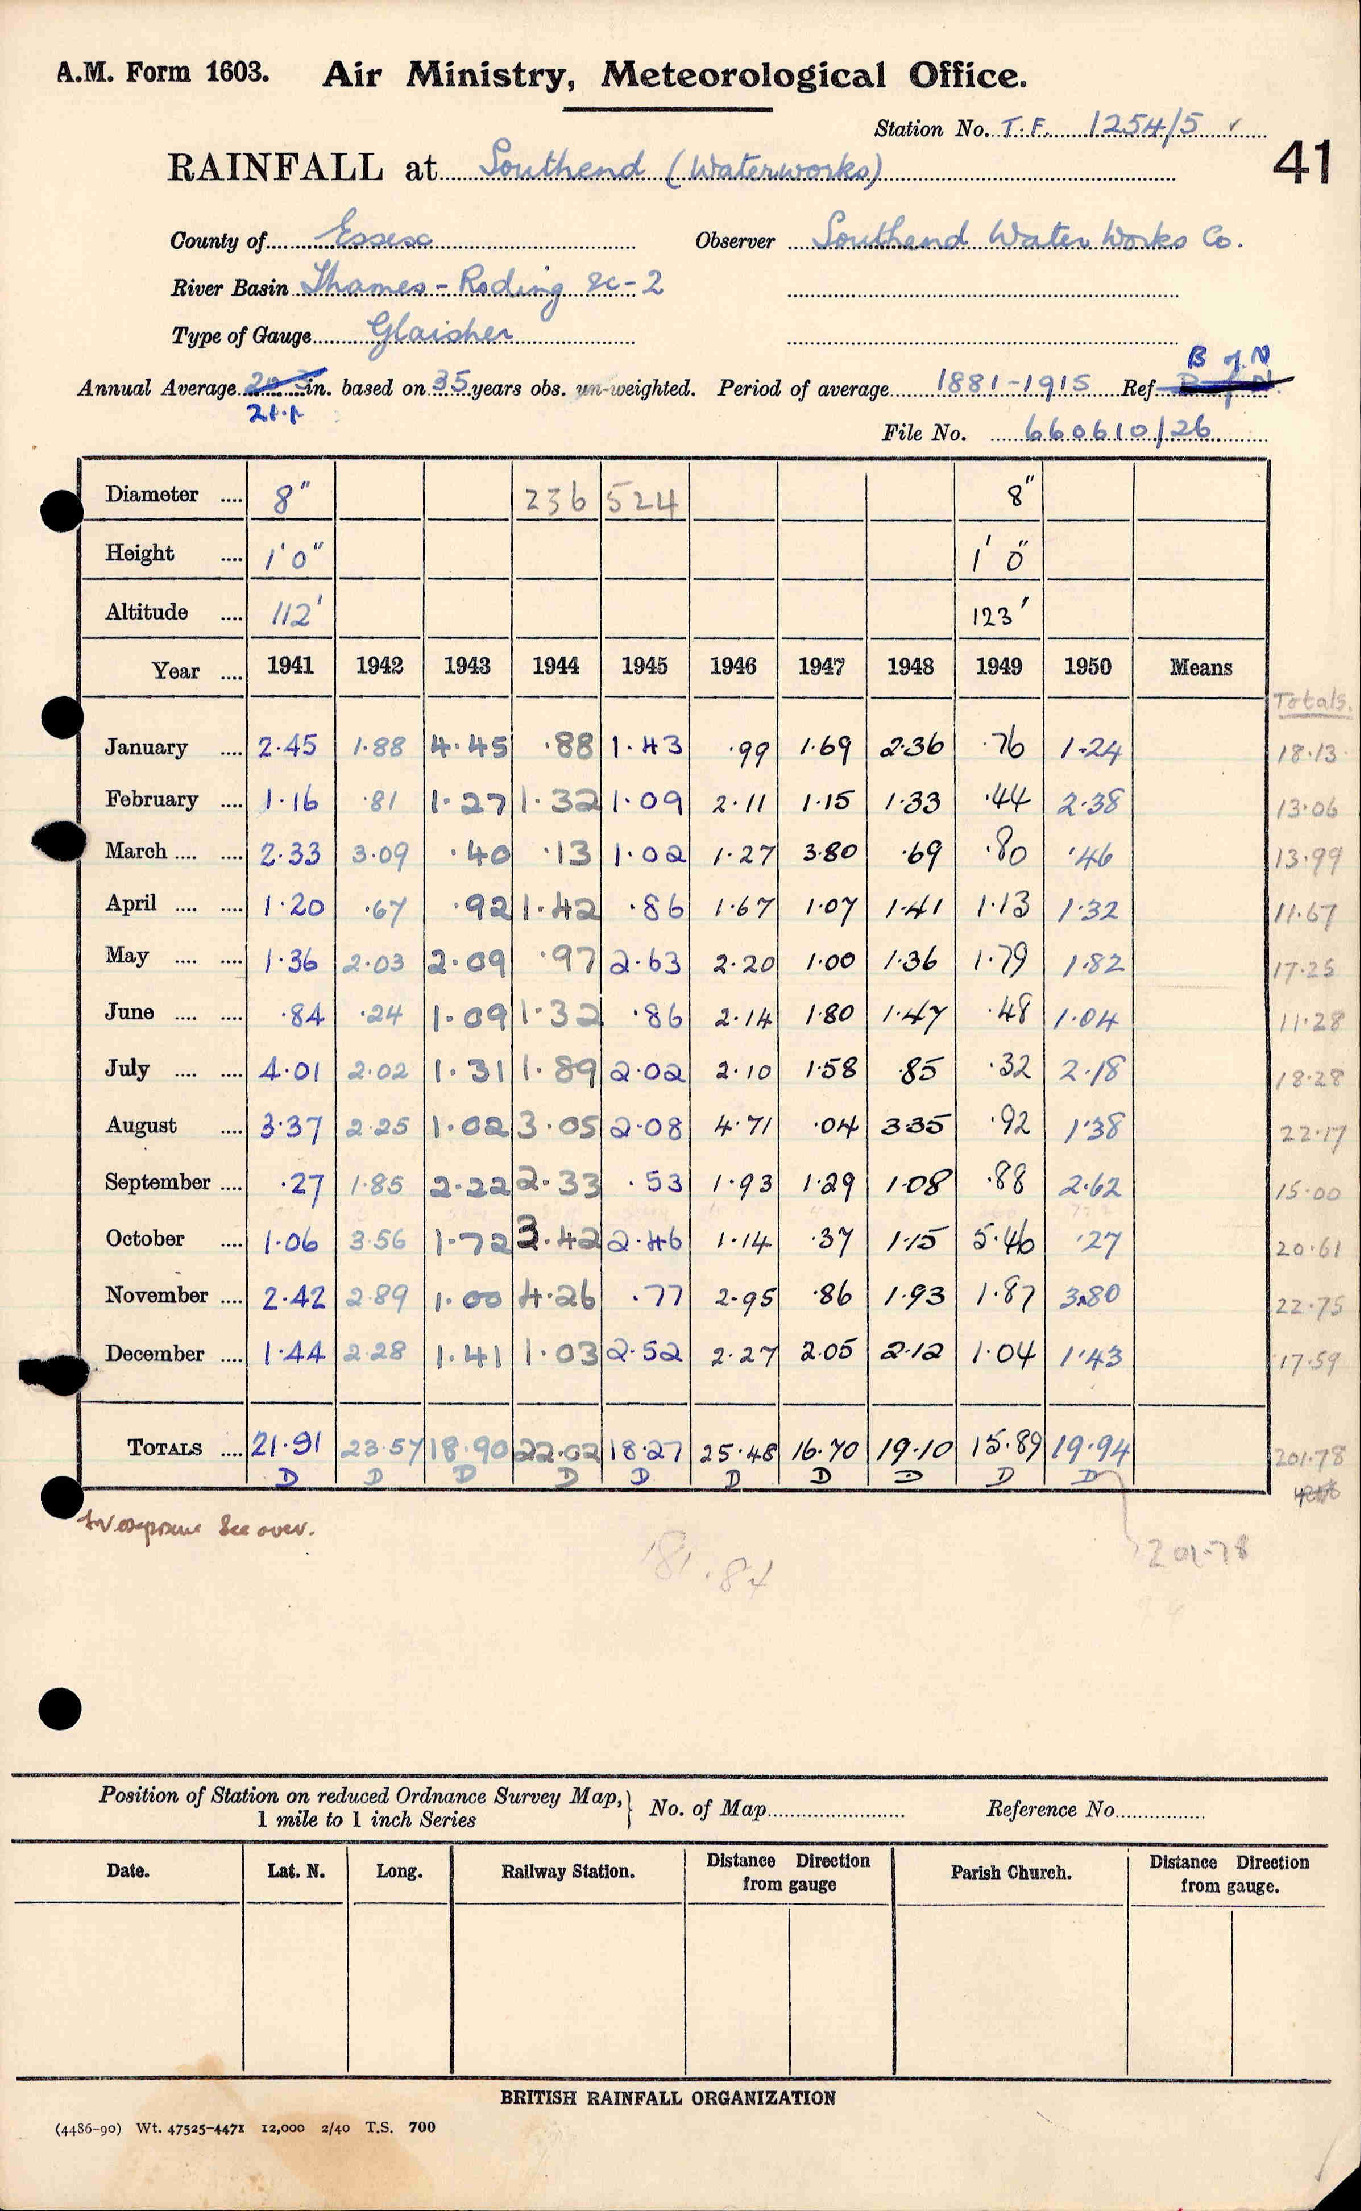 A.M. Form 1603. Air Ministry, Meteorological Office.
Station No. T.F. 1254/5 ✓
41
RAINFALL at Southend (Waterworks)
County of Essex Observer Southend Water Works Co.
River Basin Thames - Roding 8c-2
Type of Gauge Glaisher
B of N
Annual Average in. based on 35 years obs. un-weighted. Period of average 1881-1915 Ref B of N
21.1
File No. 660610/26
Diameter .... 8" 236 524 8"
Height .... 1' 0" 1' 0"
Altitude .... 112' 123'
Year .... 1941 1942 1943 1944 1945 1946 1947 1948 1949 1950 Means
Totals.
January .... 2.45 1.88 4.45 .88 1.43 .99 1.69 2.36 .76 1.24 18.13
February .... 1.16 .81 1.27 1.32 1.09 2.11 1.15 1.33 .44 2.38 13.06
March .... .... 2.33 3.09 .40 .13 1.02 1.27 3.80 .69 .80 .46 13.99
April .... .... 1.20 .67 .92 1.42 .86 1.67 1.07 1.41 1.13 1.32 11.67
May .... .... 1.36 2.03 2.09 .97 2.63 2.20 1.00 1.36 1.79 1.82 17.25
June .... .... .84 .24 1.09 1.32 .86 2.14 1.80 1.47 .48 1.04 11.28
July .... .... 4.01 2.02 1.31 1.89 2.02 2.10 1.58 .85 .32 2.18 18.28
August .... 3.37 2.25 1.02 3.05 2.08 4.71 .04 3.35 .92 1.38 22.17
September .... .27 1.85 2.22 2.33 .53 1.93 1.29 1.08 .88 2.62 15.00
October .... 1.06 3.56 1.72 3.42 2.46 1.14 .37 1.15 5.46 .27 20.61
November .... 2.42 2.89 1.00 4.26 .77 2.95 .86 1.93 1.87 3.80 22.75
December .... 1.44 2.28 1.41 1.03 2.52 2.27 2.05 2.12 1.04 1.43 17.59
TOTALS .... 21.91 23.57 18.90 22.02 18.27 25.48 16.70 19.10 15.89 19.94 201.78
D D D D D D D D D D
See over.
181.84
201.78
Position of Station on reduced Ordnance Survey Map,
1 mile to 1 inch Series
No. of Map Reference No.
Date. Lat. N. Long. Railway Station. Distance Direction from gauge Parish Church. Distance Direction from gauge.
BRITISH RAINFALL ORGANIZATION
(4486-90) Wt. 47525-4471 12,000 2/40 T.S. 700